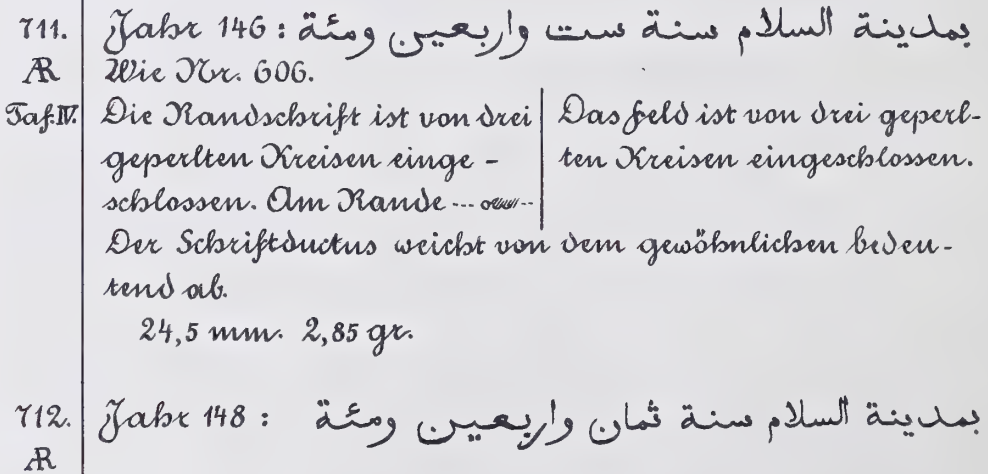 711. Jahr 146 : بمدينة السلام سنة ست واربعين ومئة
AR Wie Nr. 606.
Taf. IV. Die Randschrift ist von drei
geperlten Kreisen einge-
schlossen. Am Rande
Das Feld ist von drei geperl-
ten Kreisen eingeschlossen.
Der Schriftductus weicht von dem gewöhnlichen bedeu-
tend ab.
24,5 mm. 2,85 gr.
712. Jahr 148 : بمدينة السلام سنة ثمان واربعين ومئة
AR